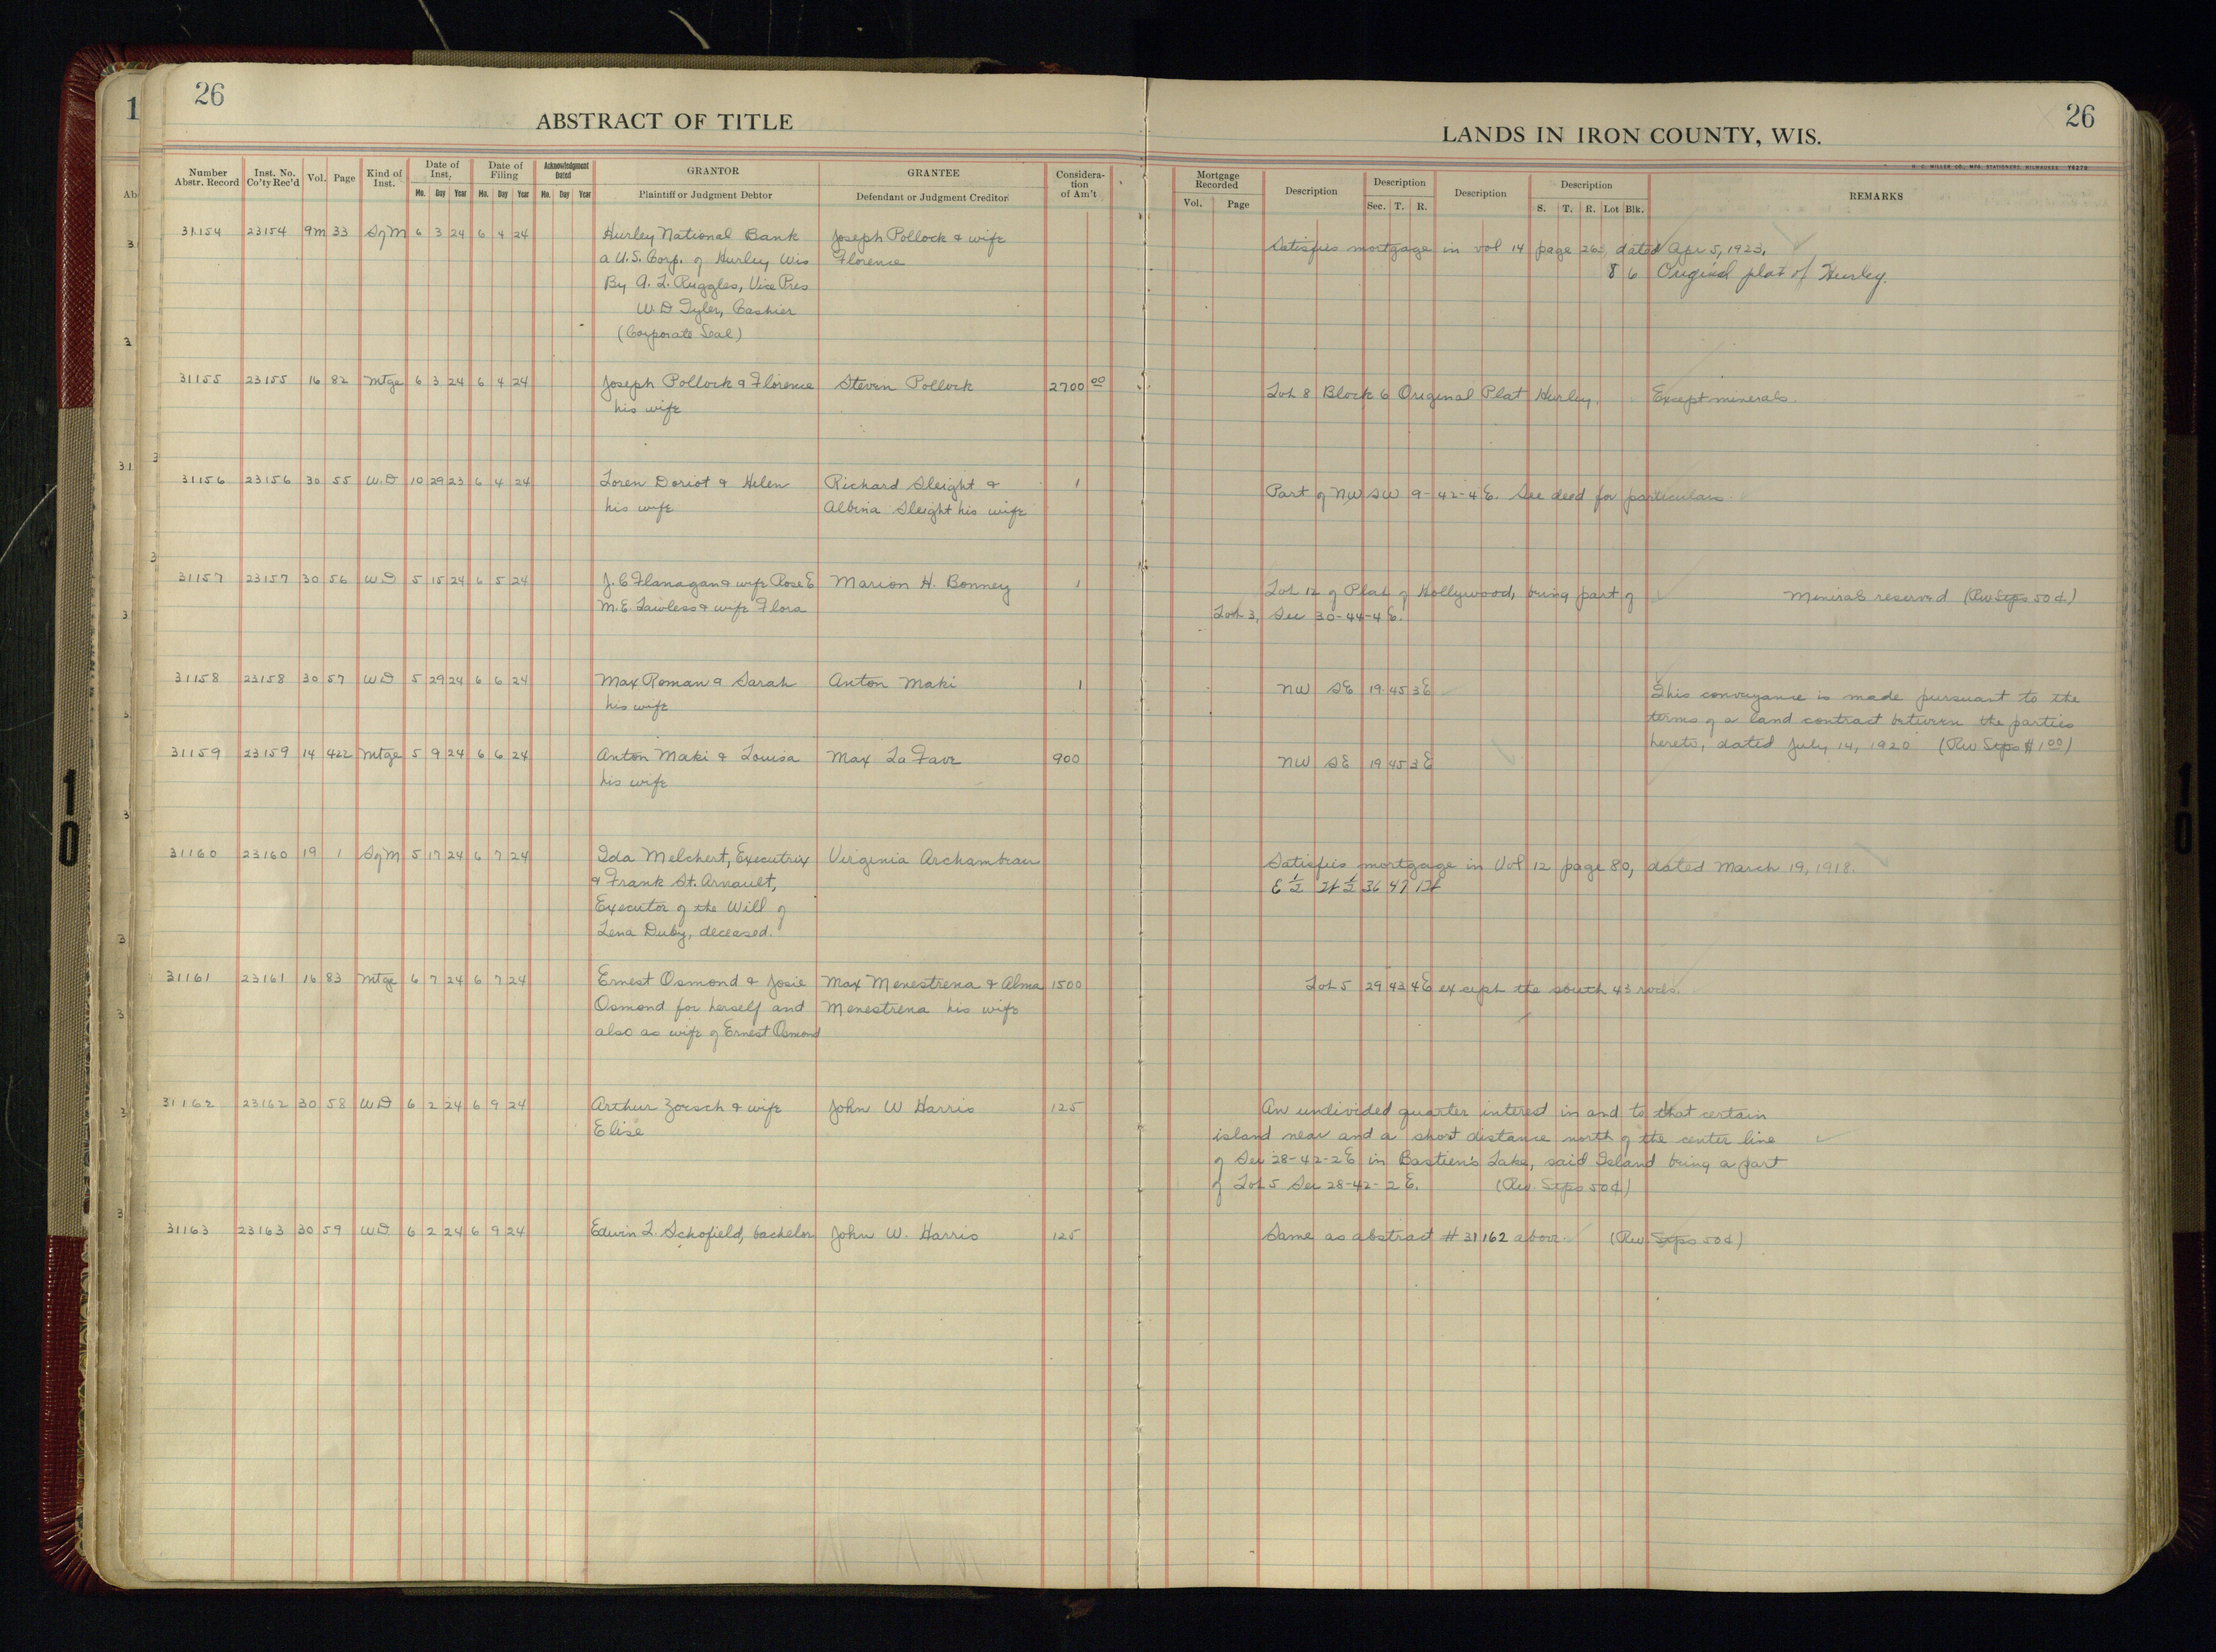 26
26
ABSTRACT OF TITLE
LANDS IN IRON COUNTY, WIS.
Number Abstr. Record Inst. No. Co'ty Rec'd Vol. Page Kind of Inst. Date of Inst. Mo. Day Year Date of Filing Mo. Day Year Acknowledgment Dated Mo. Day Year GRANTOR Plaintiff or Judgment Debtor GRANTEE Defendant or Judgment Creditor Considera-tion of Am't
Mortgage Recorded Vol. Page Description Description Sec. T. R. Description Description S. T. R. Lot Blk. REMARKS
31154 23154 9m 33 S of M 6 3 24 6 4 24 Hurley National Bank Joseph Pollock & wife Satisfies mortgage in vol 14 page 263, dated Apr 5, 1923,
a U.S. Corp. of Hurley Wis Florence 8 6 Original plat of Hurley.
By A. L. Ruggles, Vice Pres
W. D Tyler, Cashier
(Corporate Seal)
31155 23155 16 82 Mtge 6 3 24 6 4 24 Joseph Pollock & Florence Steven Pollock 2700 00 Lot 8 Block 6 Original Plat Hurley. Except minerals.
his wife
31156 23156 30 55 W.D 10 29 23 6 4 24 Loren Doriot & Helen Richard Sleight & 1 Part of NW SW 9-42-4 E. See deed for particulars.
his wife Albina Sleight his wife
31157 23157 30 56 WD 5 15 24 6 5 24 J. C Flanagan & wife Rose E Marion H. Bonney 1 Lot 12 of Plat of Hollywood, being part of Minerals reserved (Rev Stps 50¢)
M. E. Lawless & wife Flora Lot 3, Sec 30-44-4 E.
31158 23158 30 57 WD 5 29 24 6 6 24 Max Roman & Sarah Anton Maki 1 NW SE 19 45 3E This conveyance is made pursuant to the
his wife terms of a land contract between the parties
hereto, dated July 14, 1920 (Rev Stps $1 00)
31159 23159 14 422 Mtge 5 9 24 6 6 24 Anton Maki & Louisa Max La Fave 900 NW SE 19 45 3E
his wife
31160 23160 19 1 S of M 5 17 24 6 7 24 Ida Melchert, Executrix Virginia Archambeau Satisfies mortgage in Vol 12 page 80, dated March 19, 1918.
& Frank St. Arnault, E ½ ½ 36 47
Executor of the Will of
Lena Duby, deceased.
31161 23161 16 83 Mtge 6 7 24 6 7 24 Ernest Osmond & Josie Max Menestrena & Alma 1500 Lot 5 29 43 4E except the south 43 rods.
Osmond for herself and Menestrena his wife
also as wife of Ernest Osmond
31162 23162 30 58 WD 6 2 24 6 9 24 Arthur Zoesch & wife John W Harris 125 An undivided quarter interest in and to that certain
Elise island near and a short distance north of the center line
of Sec 28-42-2E in Bastien's Lake, said Island being a part
of Lot 5 Sec 28-42-2 E. (Rev. Stps 50¢)
31163 23163 30 59 WD 6 2 24 6 9 24 Edwin L. Schofield, bachelor John W. Harris 125 Same as abstract # 31162 above (Rev Stps 50¢)
10
10